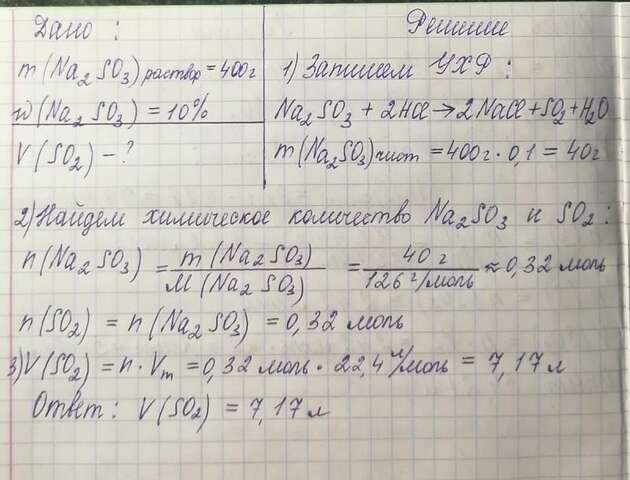 Дано:
m(Na₂SO₃)раствор = 400г
w(Na₂SO₃) = 10%
V(SO₂) - ?
Решение
1) Запишем УХР:
Na₂SO₃ + 2HCl → 2NaCl + SO₂ + H₂O
m(Na₂SO₃)чист = 400г · 0,1 = 40г
2) Найдем химическое количество Na₂SO₃ и SO₂:
n(Na₂SO₃) = m(Na₂SO₃) / M(Na₂SO₃) = 40 г / 126 г/моль ≈ 0,32 моль
n(SO₂) = n(Na₂SO₃) = 0,32 моль
3) V(SO₂) = n · Vm = 0,32 моль · 22,4 л/моль = 7,17 л
Ответ: V(SO₂) = 7,17 л